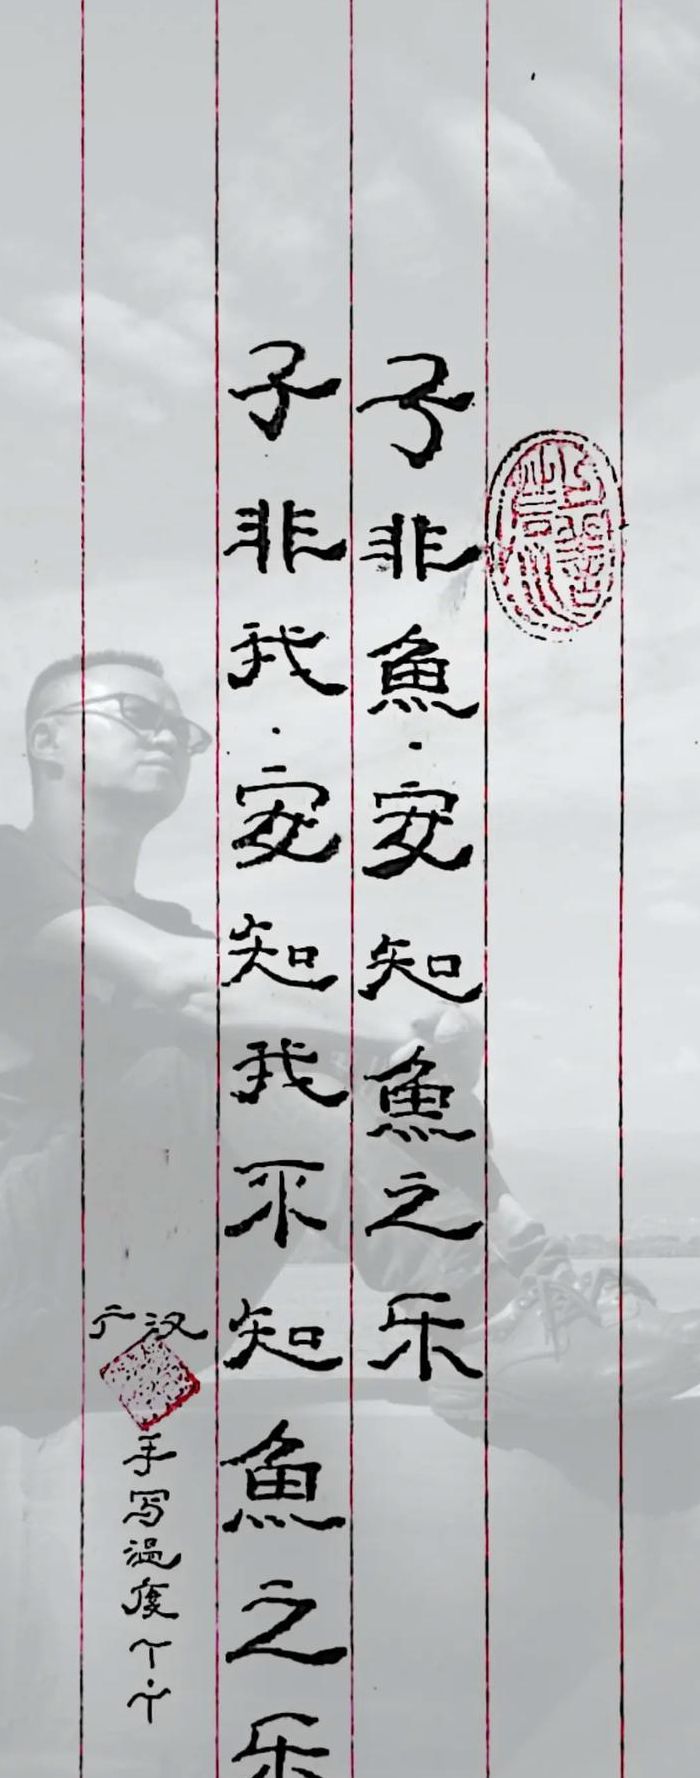 子非魚·安知魚之乐
子非我·安知我不知魚之乐
广汉
手写温度